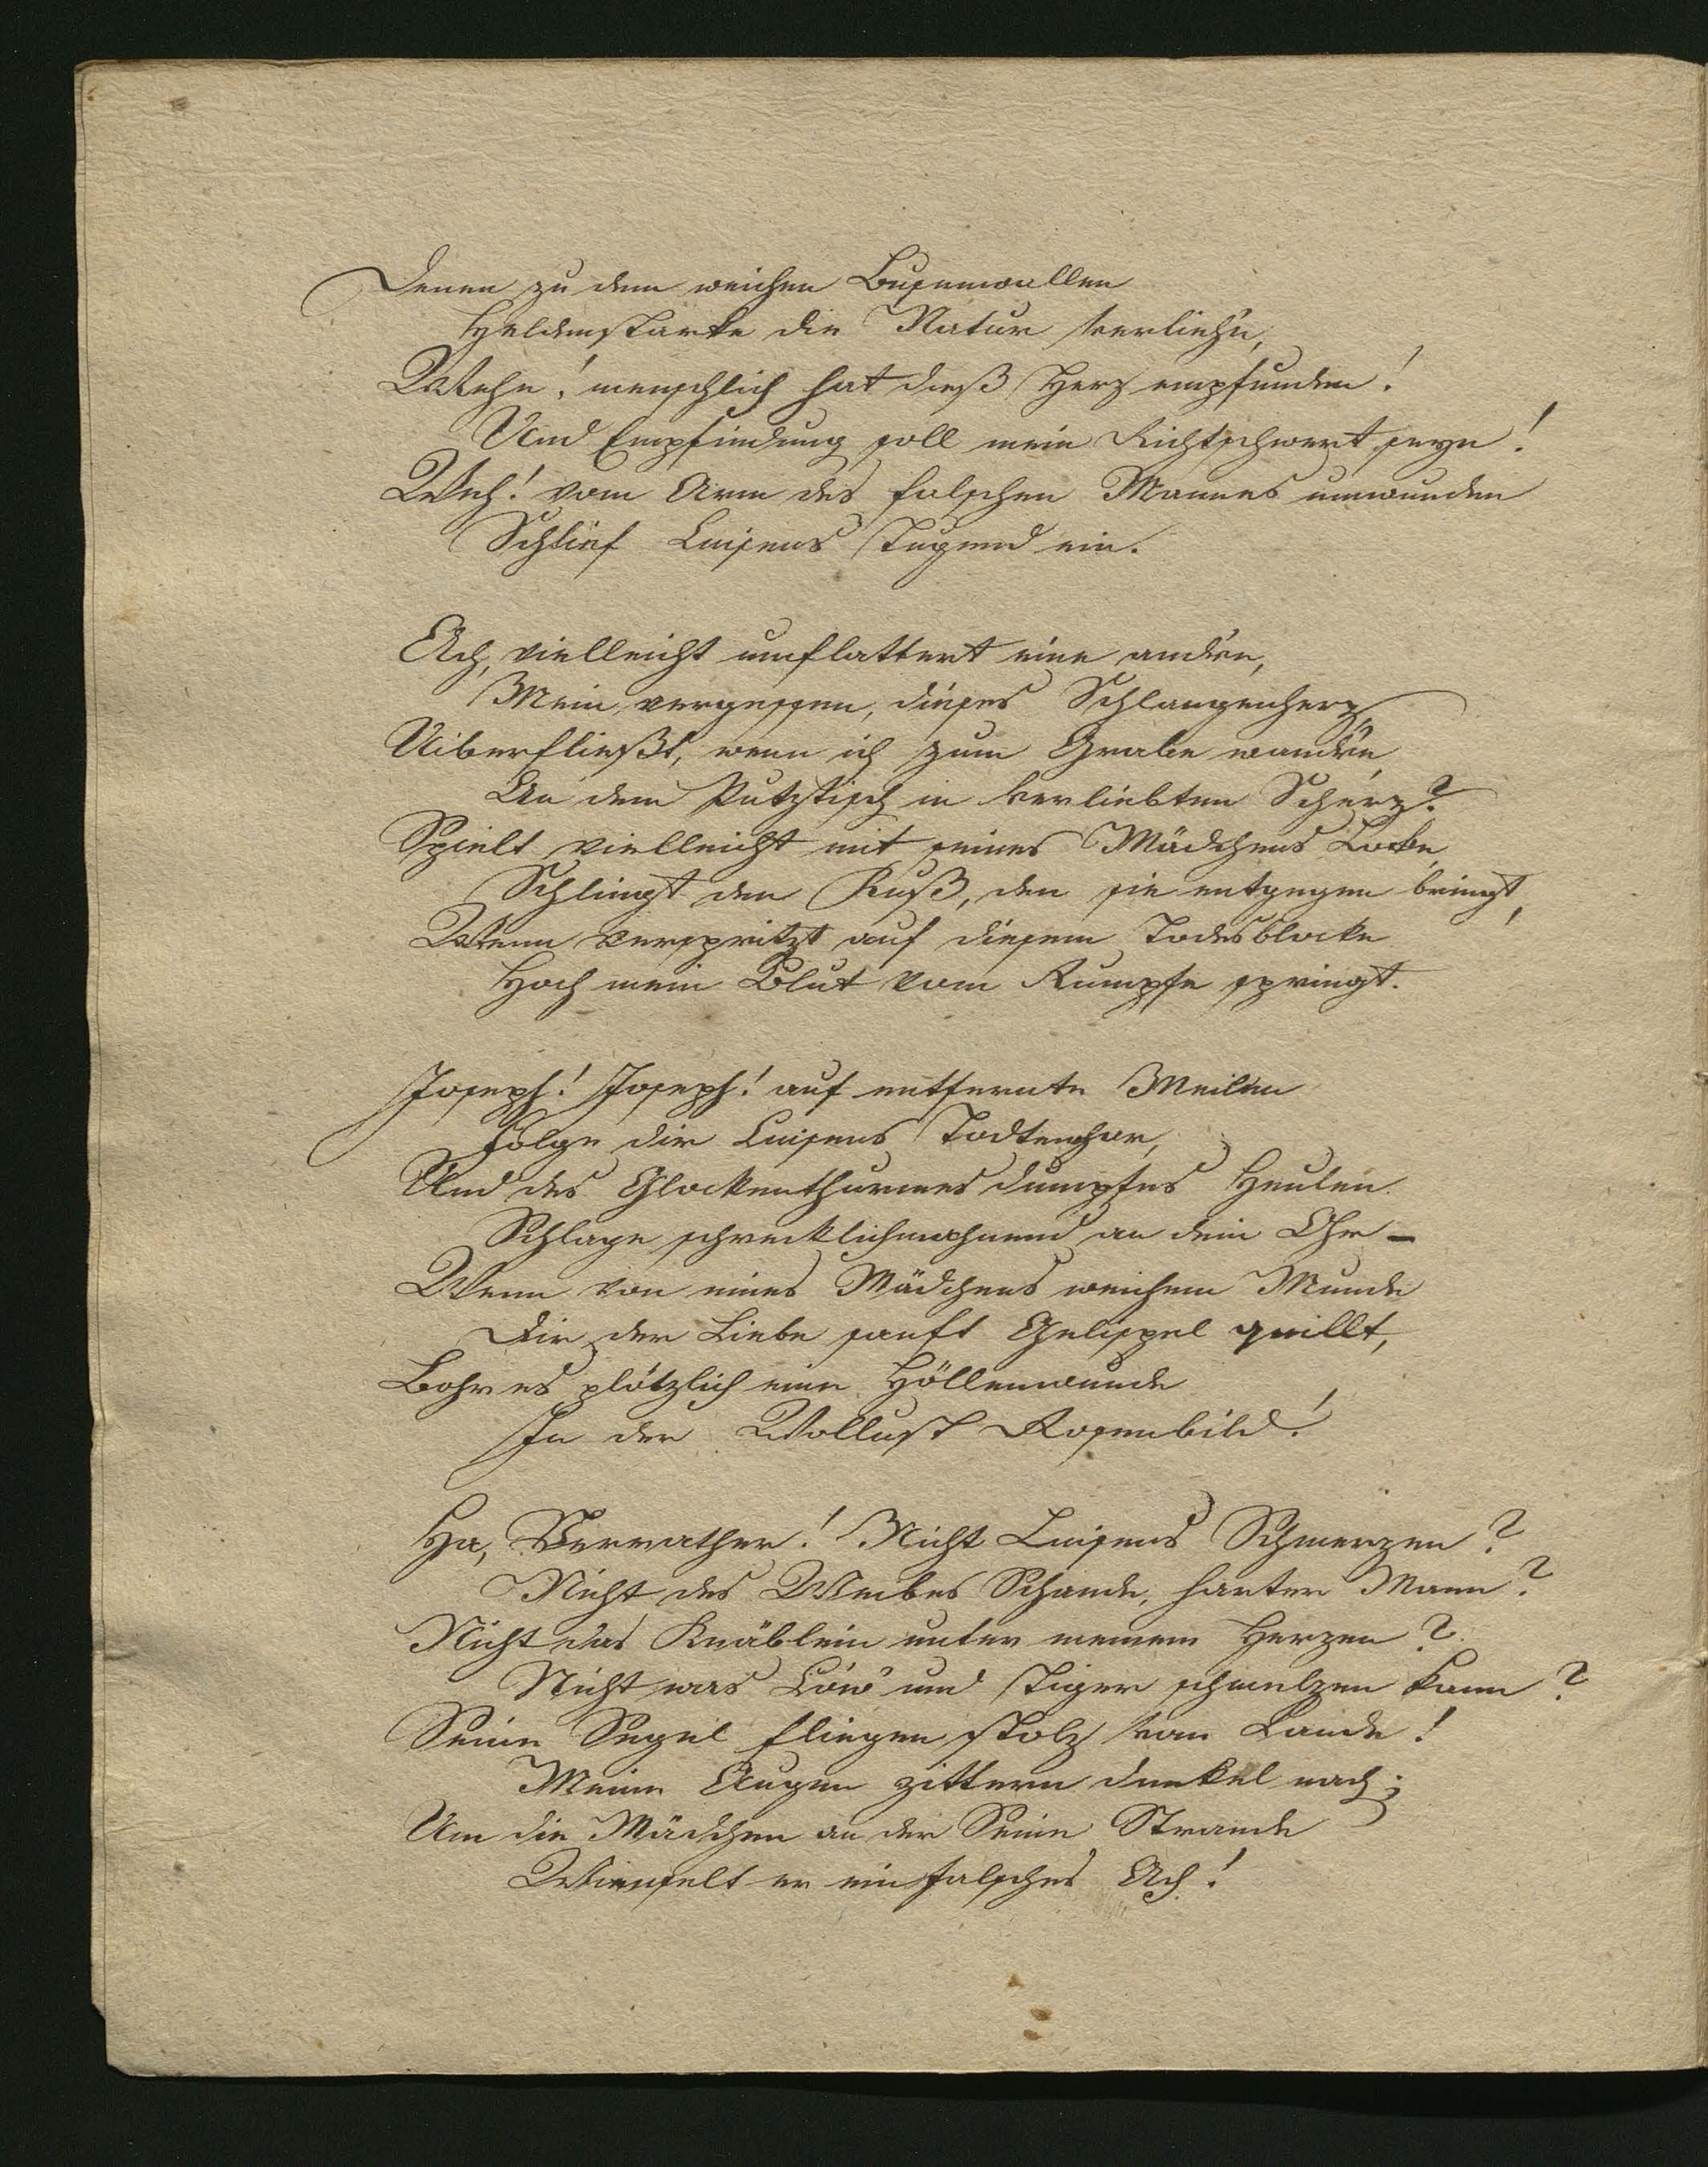 Denen zu dem weichen Busenwallen
Heldenstarke die Natur verlieh'n,
Wehe! menschlich hat dieß Herz empfunden!
Und Empfindung soll mein Richtschwert seyn!
Weh! vom Arm des falschen Mannes umwunden
Schlief Luisens Tugend ein.
Ach, vielleicht umflattert eine andre,
Mein vergessen, dieses Schlangenherz,
Uiberfließt, wenn ich zum Grabe wandre,
An dem Putztisch in verliebten Scherz?
Spielt vielleicht mit seines Mädchens Locke,
Schlingt den Kuß, den sie entgegen bringt,
Wenn verspritzt auf diesem Todesblocke
Hoch mein Blut vom Rumpfe springt.
Joseph! Joseph! auf entfernte Meilen
Folge dir Luisens Todtenchor,
Und des Glockenthurmes dumpfes Heulen
Schlage schrecklichmahnend an dein Ohr –
Wenn von eines Mädchens weichem Munde
Dir der Liebe sanft Gelispel quillt,
Bohr es plötzlich eine Höllenwunde
In der Wollust Rosenbild!
Ha, Verrather! Nicht Luisens Schmerzen?
Nicht des Weibes Schande, harter Mann?
Nicht das Knäblein unter meinem Herzen?
Nicht was Löw und Tiger schmelzen kann?
Seine Segel fliegen stolz vom Lande!
Meine Augen zittern dunkel nach;
Um die Mädchen an der Seine Strande
Winselt er ein falsches Ach!